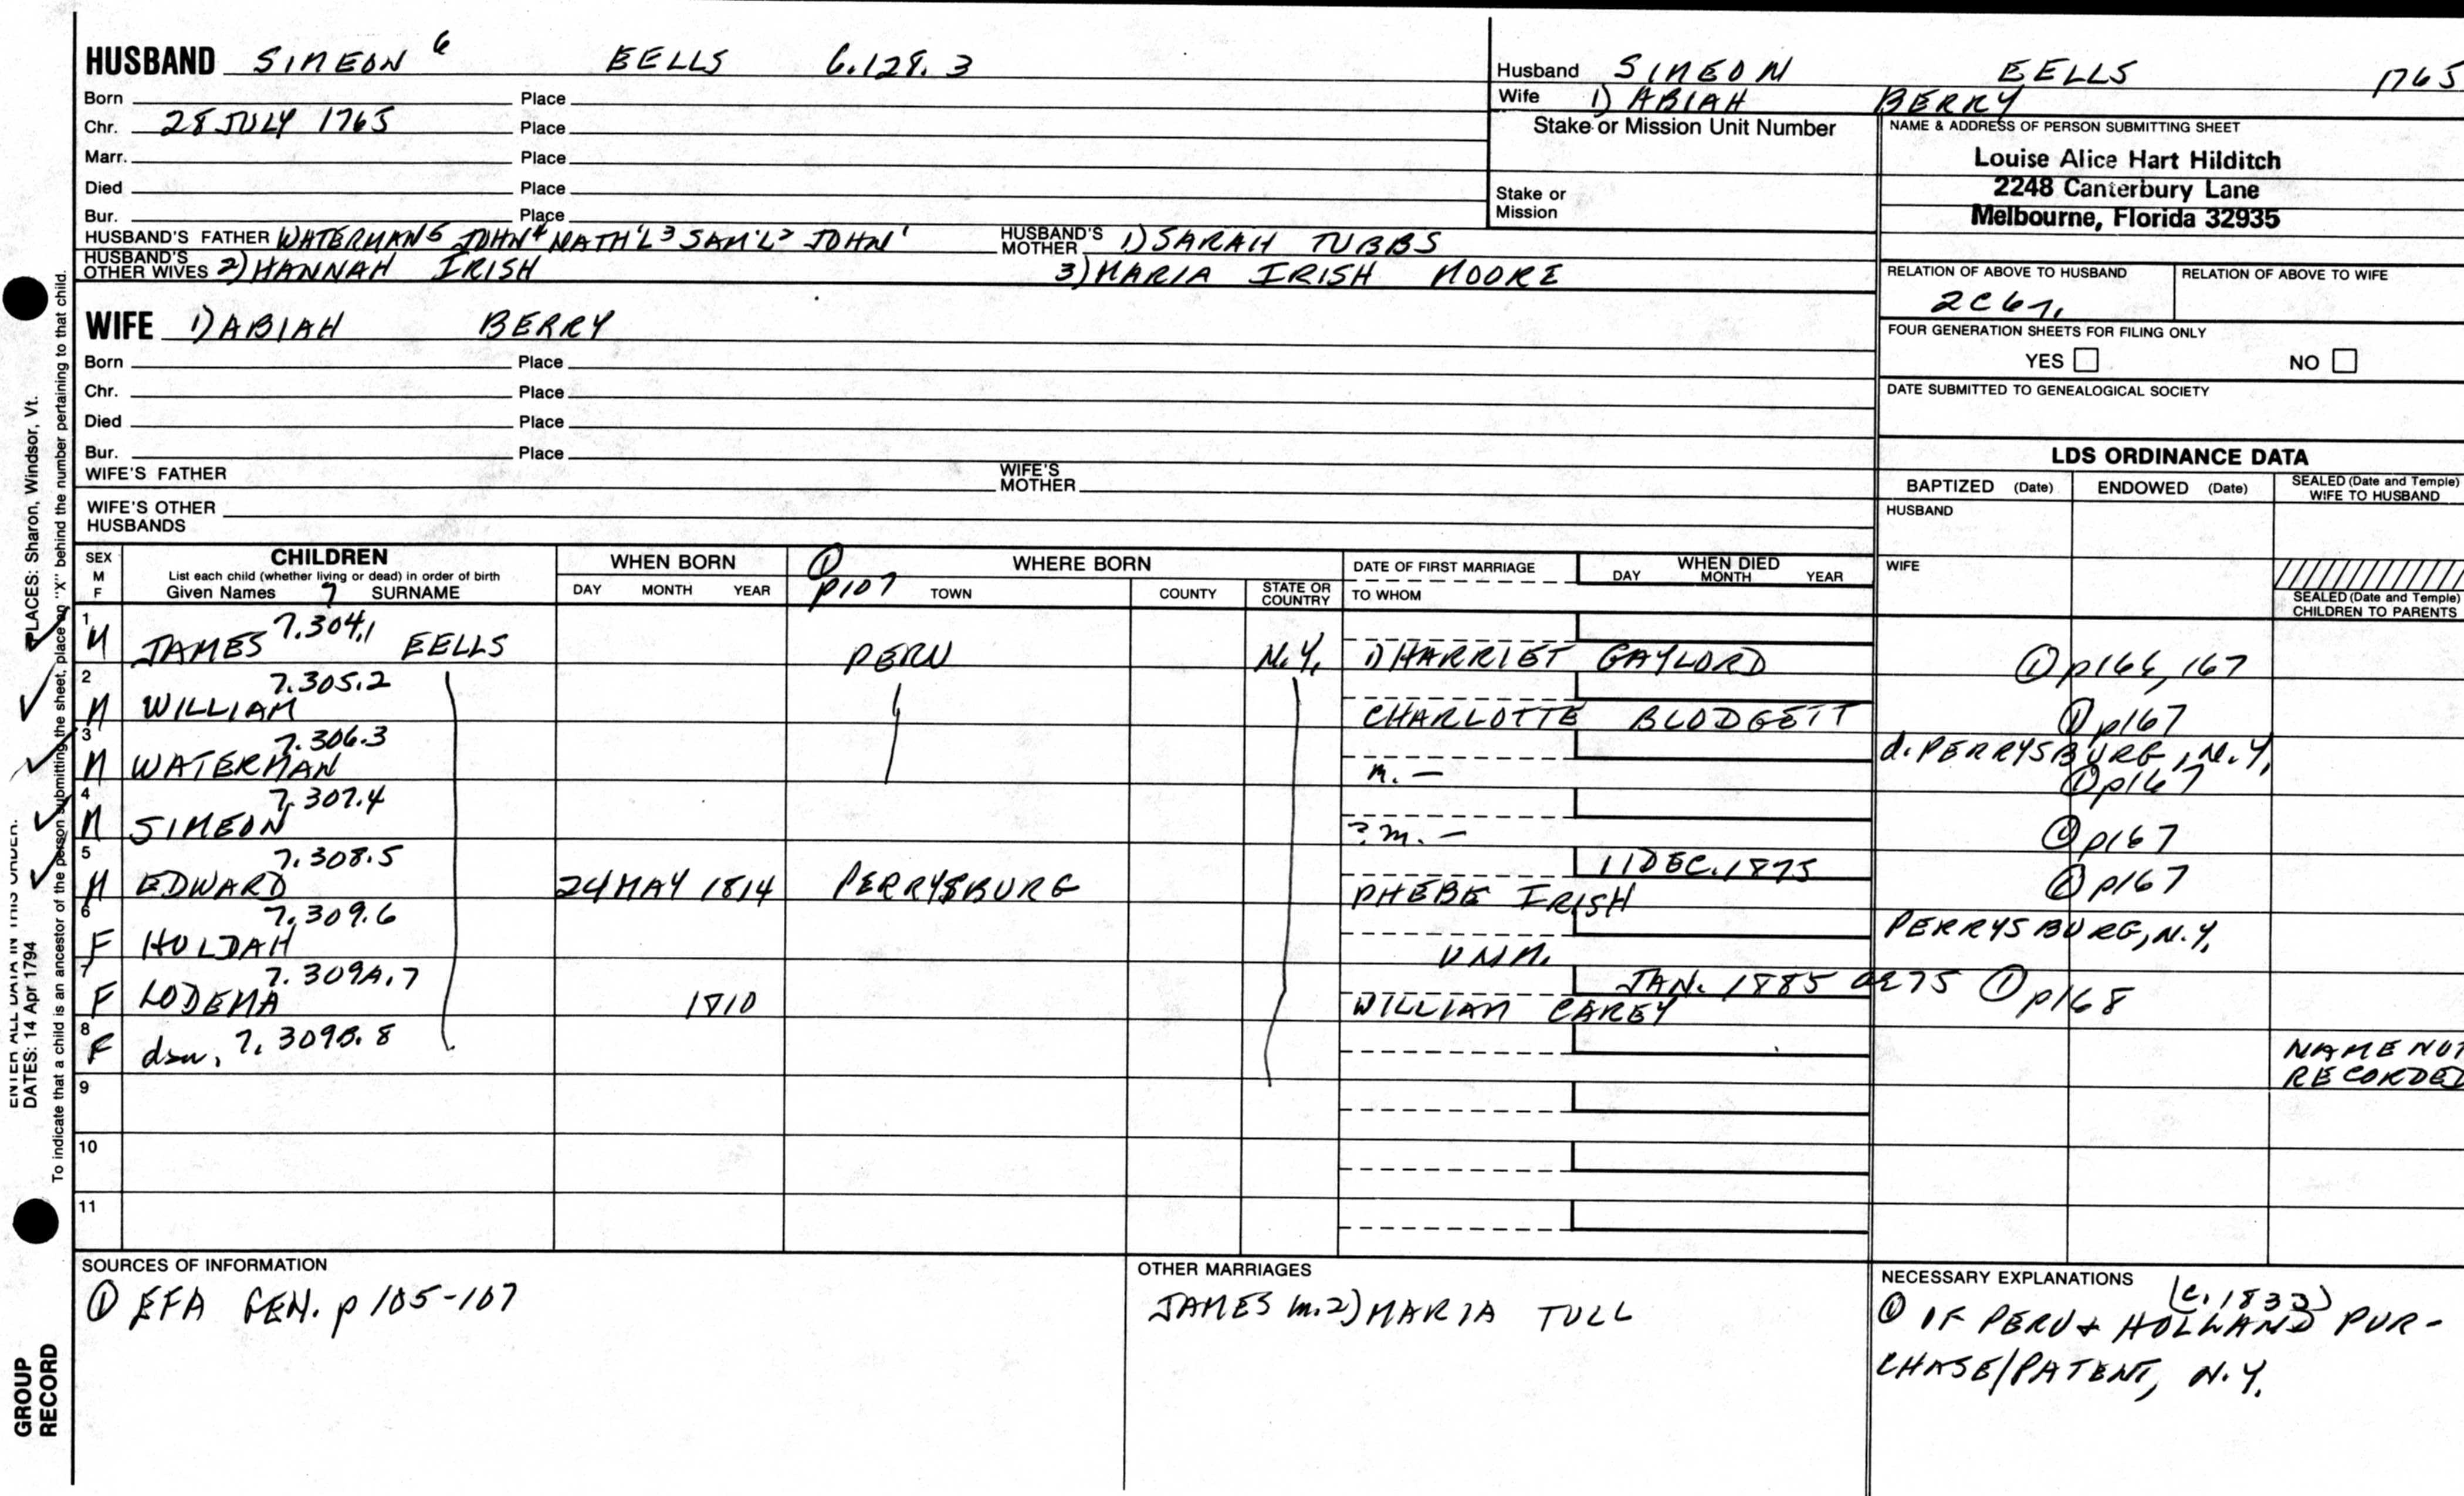 HUSBAND SIMEON 6 EELLS 6.128.3
Born Place
Chr. 28 JULY 1765 Place
Marr. Place
Died Place
Bur. Place
HUSBAND'S FATHER WATERMAN 5 JOHN 4 NATH'L 3 SAM'L 2 JOHN 1 HUSBAND'S MOTHER 1) SARAH TUBBS
HUSBAND'S OTHER WIVES 2) HANNAH IRISH 3) MARIA IRISH MOORE
WIFE 1) ABIAH BERRY
Born Place
Chr. Place
Died Place
Bur. Place
WIFE'S FATHER WIFE'S MOTHER
WIFE'S OTHER HUSBANDS
Husband SIMEON EELLS 1765
Wife 1) ABIAH BERRY
Stake or Mission Unit Number
Stake or Mission
NAME & ADDRESS OF PERSON SUBMITTING SHEET
Louise Alice Hart Hilditch
2248 Canterbury Lane
Melbourne, Florida 32935
RELATION OF ABOVE TO HUSBAND RELATION OF ABOVE TO WIFE
FOUR GENERATION SHEETS FOR FILING ONLY
YES NO
DATE SUBMITTED TO GENEALOGICAL SOCIETY
LDS ORDINANCE DATA
BAPTIZED (Date) ENDOWED (Date) SEALED (Date and Temple) WIFE TO HUSBAND
HUSBAND
WIFE
SEALED (Date and Temple) CHILDREN TO PARENTS
SEX M F
CHILDREN
List each child (whether living or dead) in order of birth
Given Names 7 SURNAME
WHEN BORN
DAY MONTH YEAR
① p107
WHERE BORN
TOWN COUNTY STATE OR COUNTRY
DATE OF FIRST MARRIAGE
TO WHOM
WHEN DIED
DAY MONTH YEAR
1 M JAMES 7.304.1 EELLS PERU N.Y. 1) HARRIET GAYLORD ① p166, 167
2 M WILLIAM 7.305.2 CHARLOTTE BLODGETT ① p167
3 M WATERMAN 7.306.3 m. — d. PERRYSBURG, N.Y. ① p167
4 M SIMEON 7.307.4 ? m. — ① p167
5 M EDWARD 7.308.5 24 MAY 1814 PERRYSBURG 11 DEC. 1875 PHEBE IRISH ① p167
6 F HULDAH 7.309.6 UNM. PERRYSBURG, N.Y.
7 F LODEMA 7.309A.7 1810 JAN. 1885 OR 75 WILLIAM CAREY ① p168
8 F dau. 7.309B.8 NAME NOT RECORDED
9
10
11
SOURCES OF INFORMATION
① EFA GEN. p 105-107
OTHER MARRIAGES
JAMES m. 2) MARIA TULL
NECESSARY EXPLANATIONS (c. 1833)
① OF PERU & HOLLAND PUR-
CHASE/PATENT, N.Y.
ENTER ALL DATA IN THIS ORDER:
DATES: 14 Apr 1794 PLACES: Sharon, Windsor, Vt.
To indicate that a child is an ancestor of the person submitting the sheet, place an "X" behind the number pertaining to that child.
GROUP
RECORD